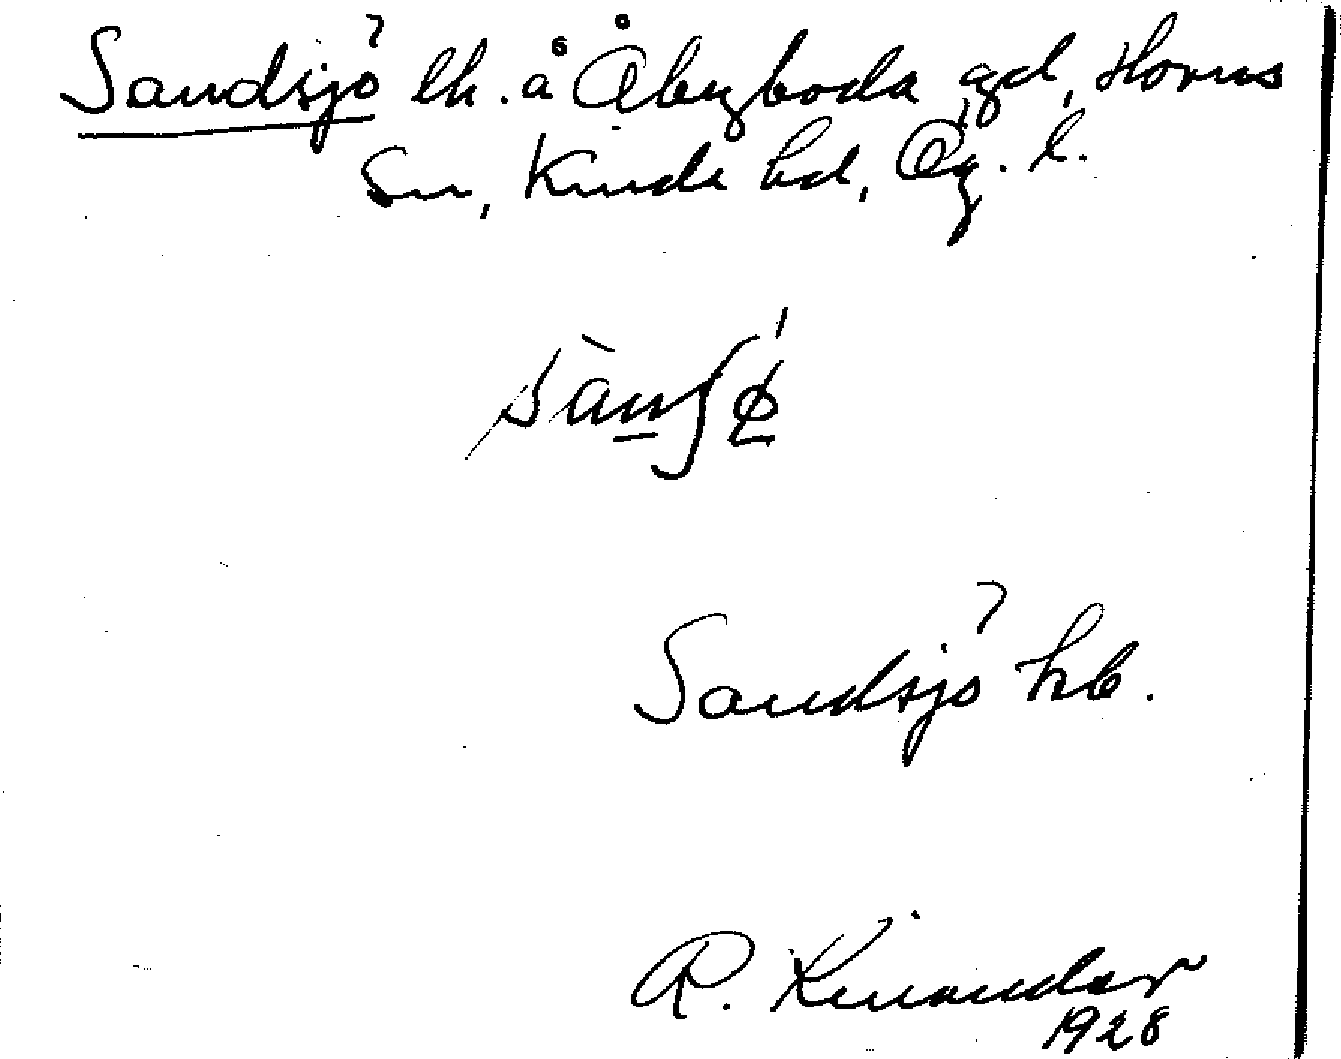 Sandsjö lh. å Åbyboda gd, Horns
Sn, Kinda hd, Ög. l.
sànʃǿ̱
Sandsjö hb.
R. Kinander
1928